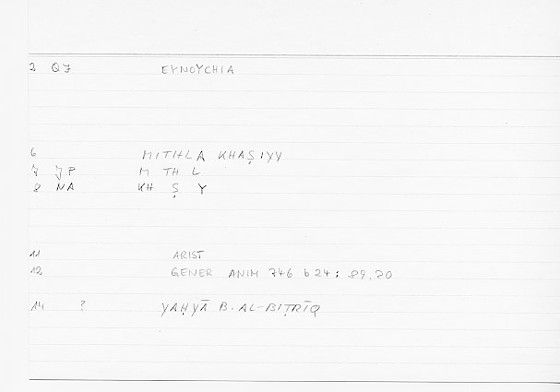 2 QJ EYNOYCHIA
6 MITHLA KHAṢIYY
7 JP M TH L
8 NA KH Ṣ Y
11 ARIST
12 GENER ANIM 746 b 24: 89,20
14 ? YAḤYĀ B. AL-BIṬRĪQ